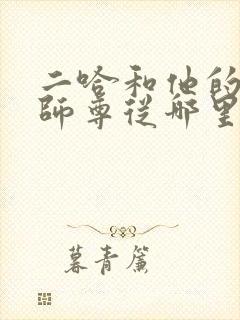 二哈和他的
师尊从那里
暮青簾